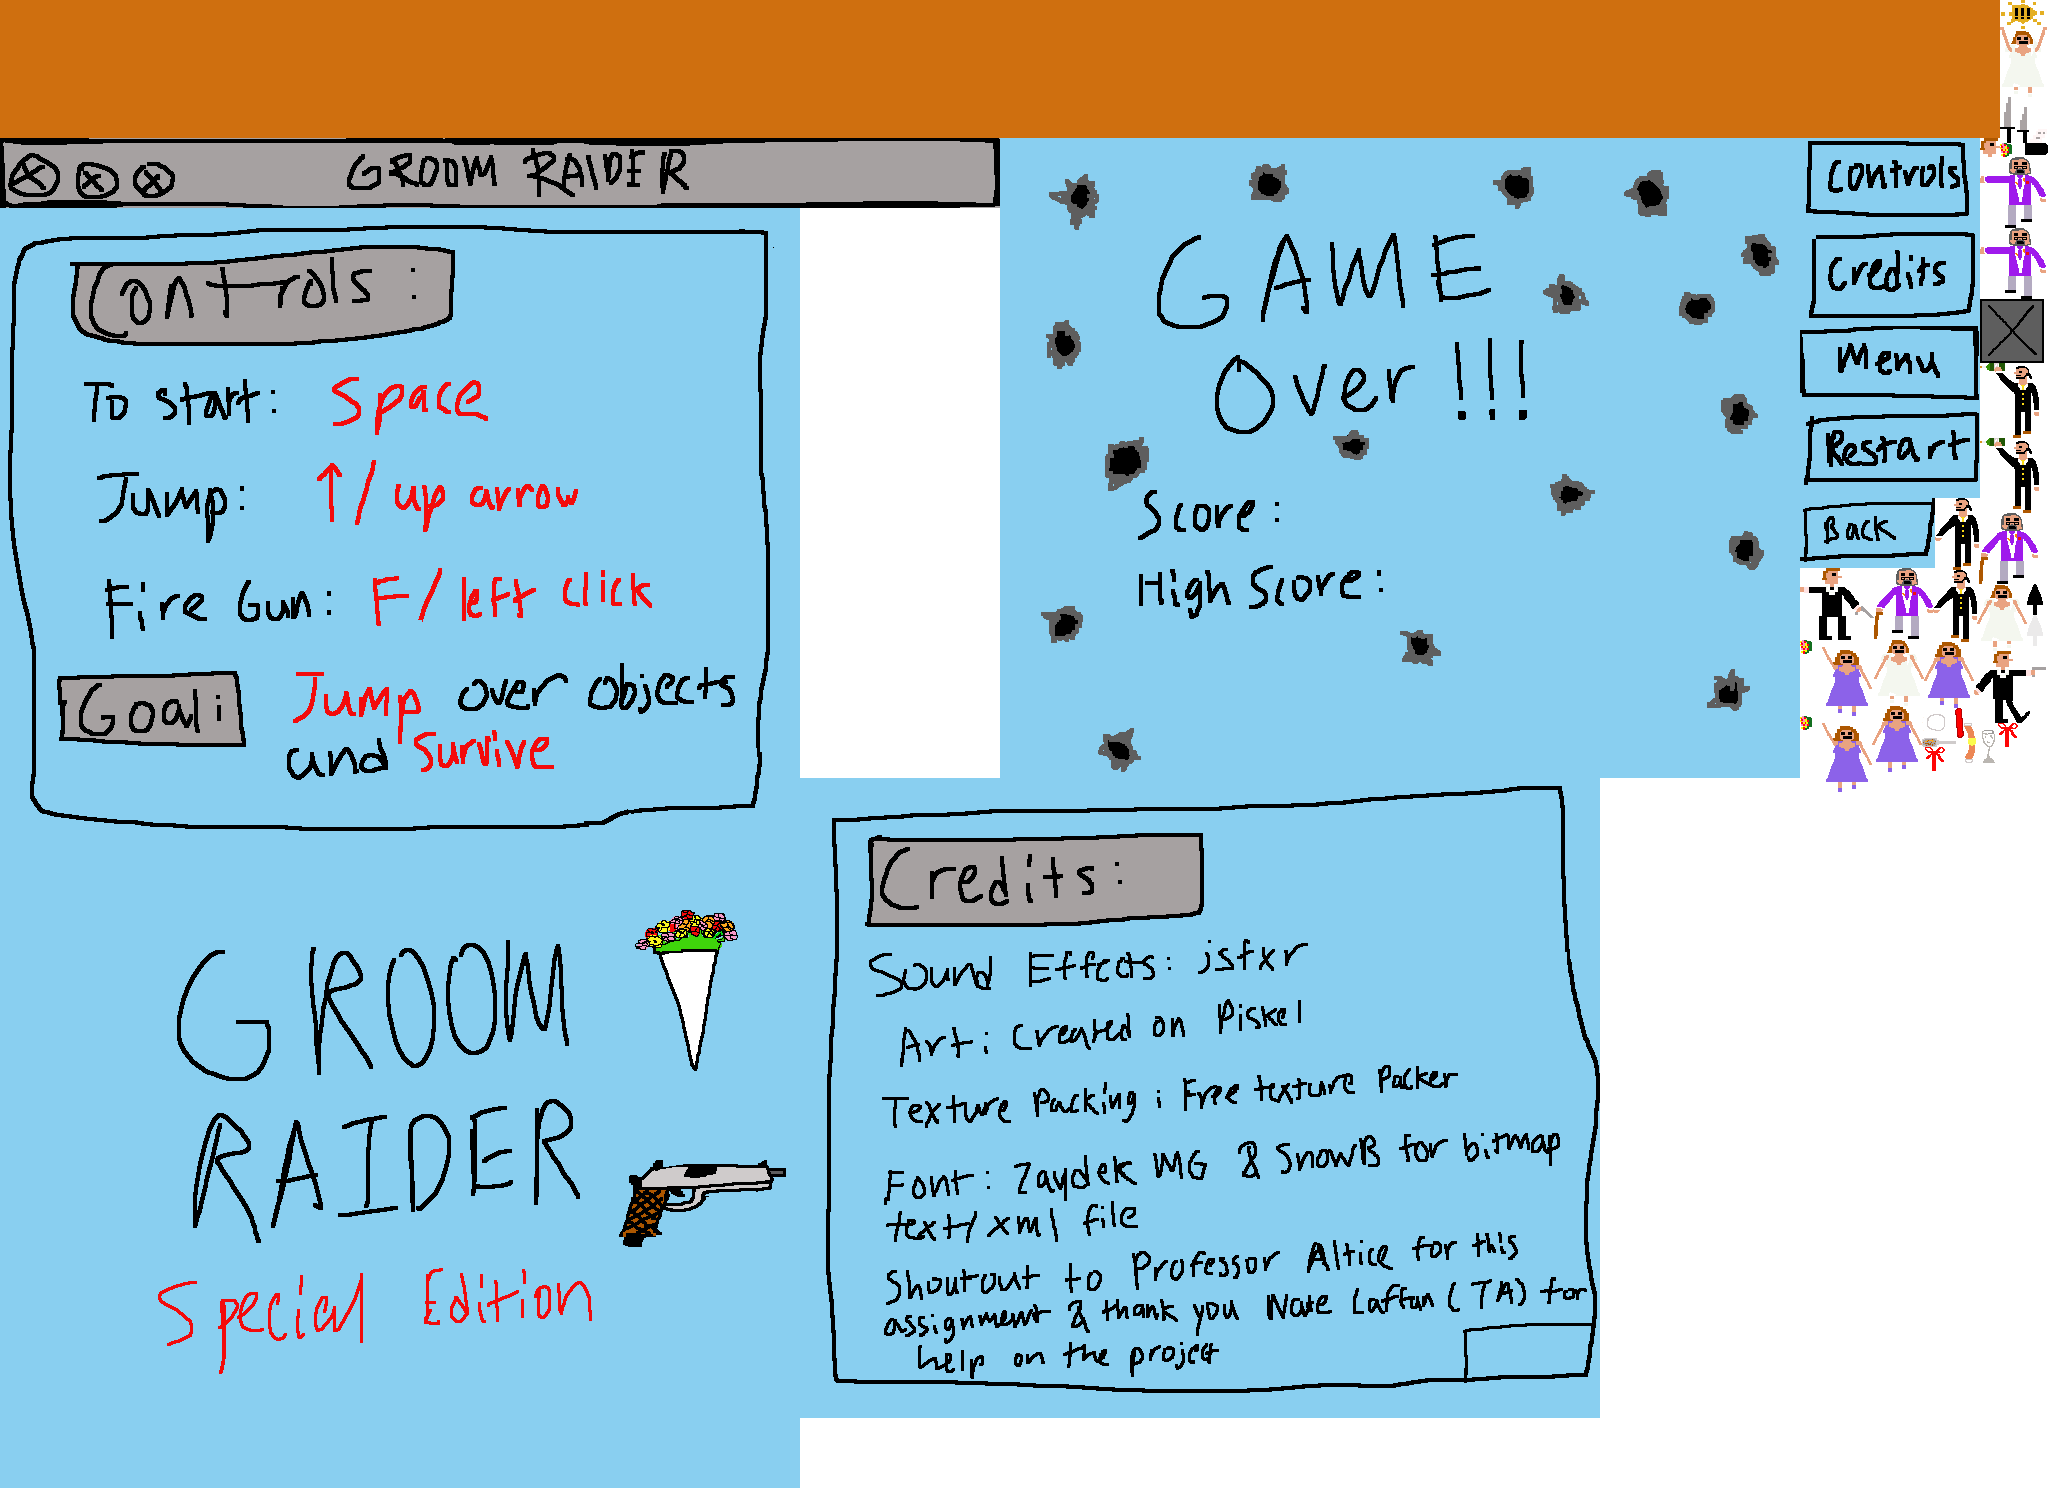 GROOM RAIDER
Controls:
To start: Space
Jump: ↑/ up arrow
Fire Gun: F/left click
Goal: Jump over objects
and Survive
GAME
Over!!!
Score:
High Score:
Controls
Credits
Menu
Restart
Back
GROOM
RAIDER
Special Edition
Credits:
Sound Effects: jsfxr
Art: Created on Piskel
Texture Packing: Free texture Packer
Font: Zaydek MG & SnowB for bitmap
text/xml file
Shoutout to Professor Altice for this
assignment & thank you Nate Laffan (TA) for
help on the project